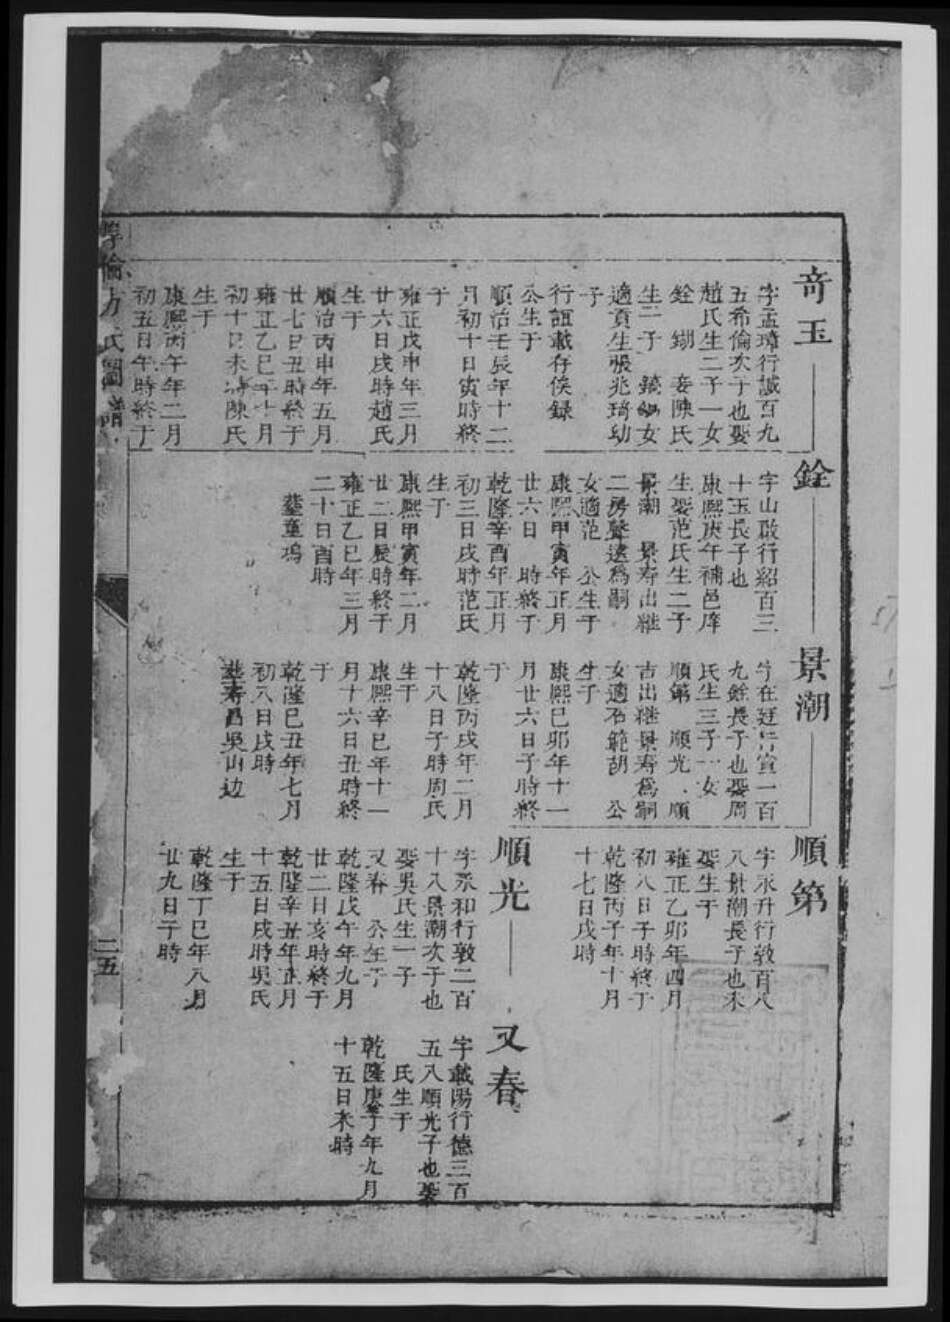 奇玉
字孟璋行誠百九
五希倫次子也娶
趙氏生二子一女
銓 鏴 妾陳氏
生二子 女
適貢生張兆琦幼
子
行誼載存俟録
公生于
順治壬辰年十二
月初十日寅時終
于
雍正戊申年三月
廿六日戌時趙氏
生于
順治丙申年五月
廿七日丑時終于
雍正乙巳年十月
初十日未時陳氏
生于
康熙丙午年二月
初五日午時終于
銓
字山啟行紹百三
十玉長子也
康熙庚午補邑庠
生娶范氏生二子
景潮 景寿出継
二房聲遠爲嗣
女適范 公生于
康熙甲寅年正月
廿六日 時終于
乾隆辛酉年正月
初三日戌時范氏
生于
康熙甲寅年二月
廿二日辰時終于
雍正乙巳年三月
二十日酉時
塟童塢
景潮
字在廷行宣一百
九銓長子也娶周
氏生三子一女
順第 順光 順
吉出継景寿爲嗣
女適石範胡 公
生于
康熙己卯年十一
月廿六日子時終
于
乾隆丙戌年二月
十八日子時周氏
生于
康熙辛巳年十一
月十六日丑時終
于
乾隆己丑年七月
初八日戌時
塟寿昌吳山边
順第
字永升行敦百八
八景潮長子也未
娶生于
雍正乙卯年四月
初八日子時終于
乾隆丙子年十月
十七日戌時
順光
字永和行敦二百
十八景潮次子也
娶吳氏生一子
又春 公生于
乾隆戊午年九月
廿二日亥時終于
乾隆辛丑年正月
十五日戌時吳氏
生于
乾隆丁巳年八月
廿九日子時
又春
字載陽行德三百
五八順光子也娶
氏生于
乾隆庚子年九月
十五日未時
倫方氏圖譜
二五